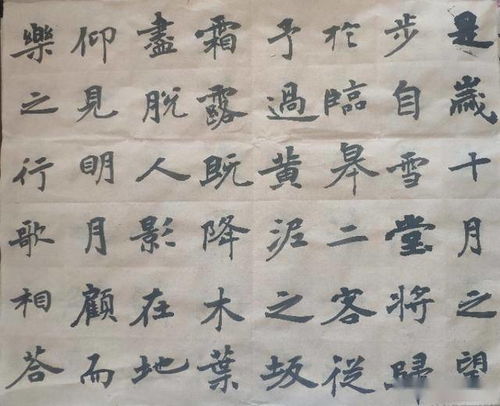 是歲十月之望
步自雪堂將歸
於臨皋二客從
予過黃泥之坂
霜露既降木葉
盡脫人影在地
仰見明月顧而
樂之行歌相荅